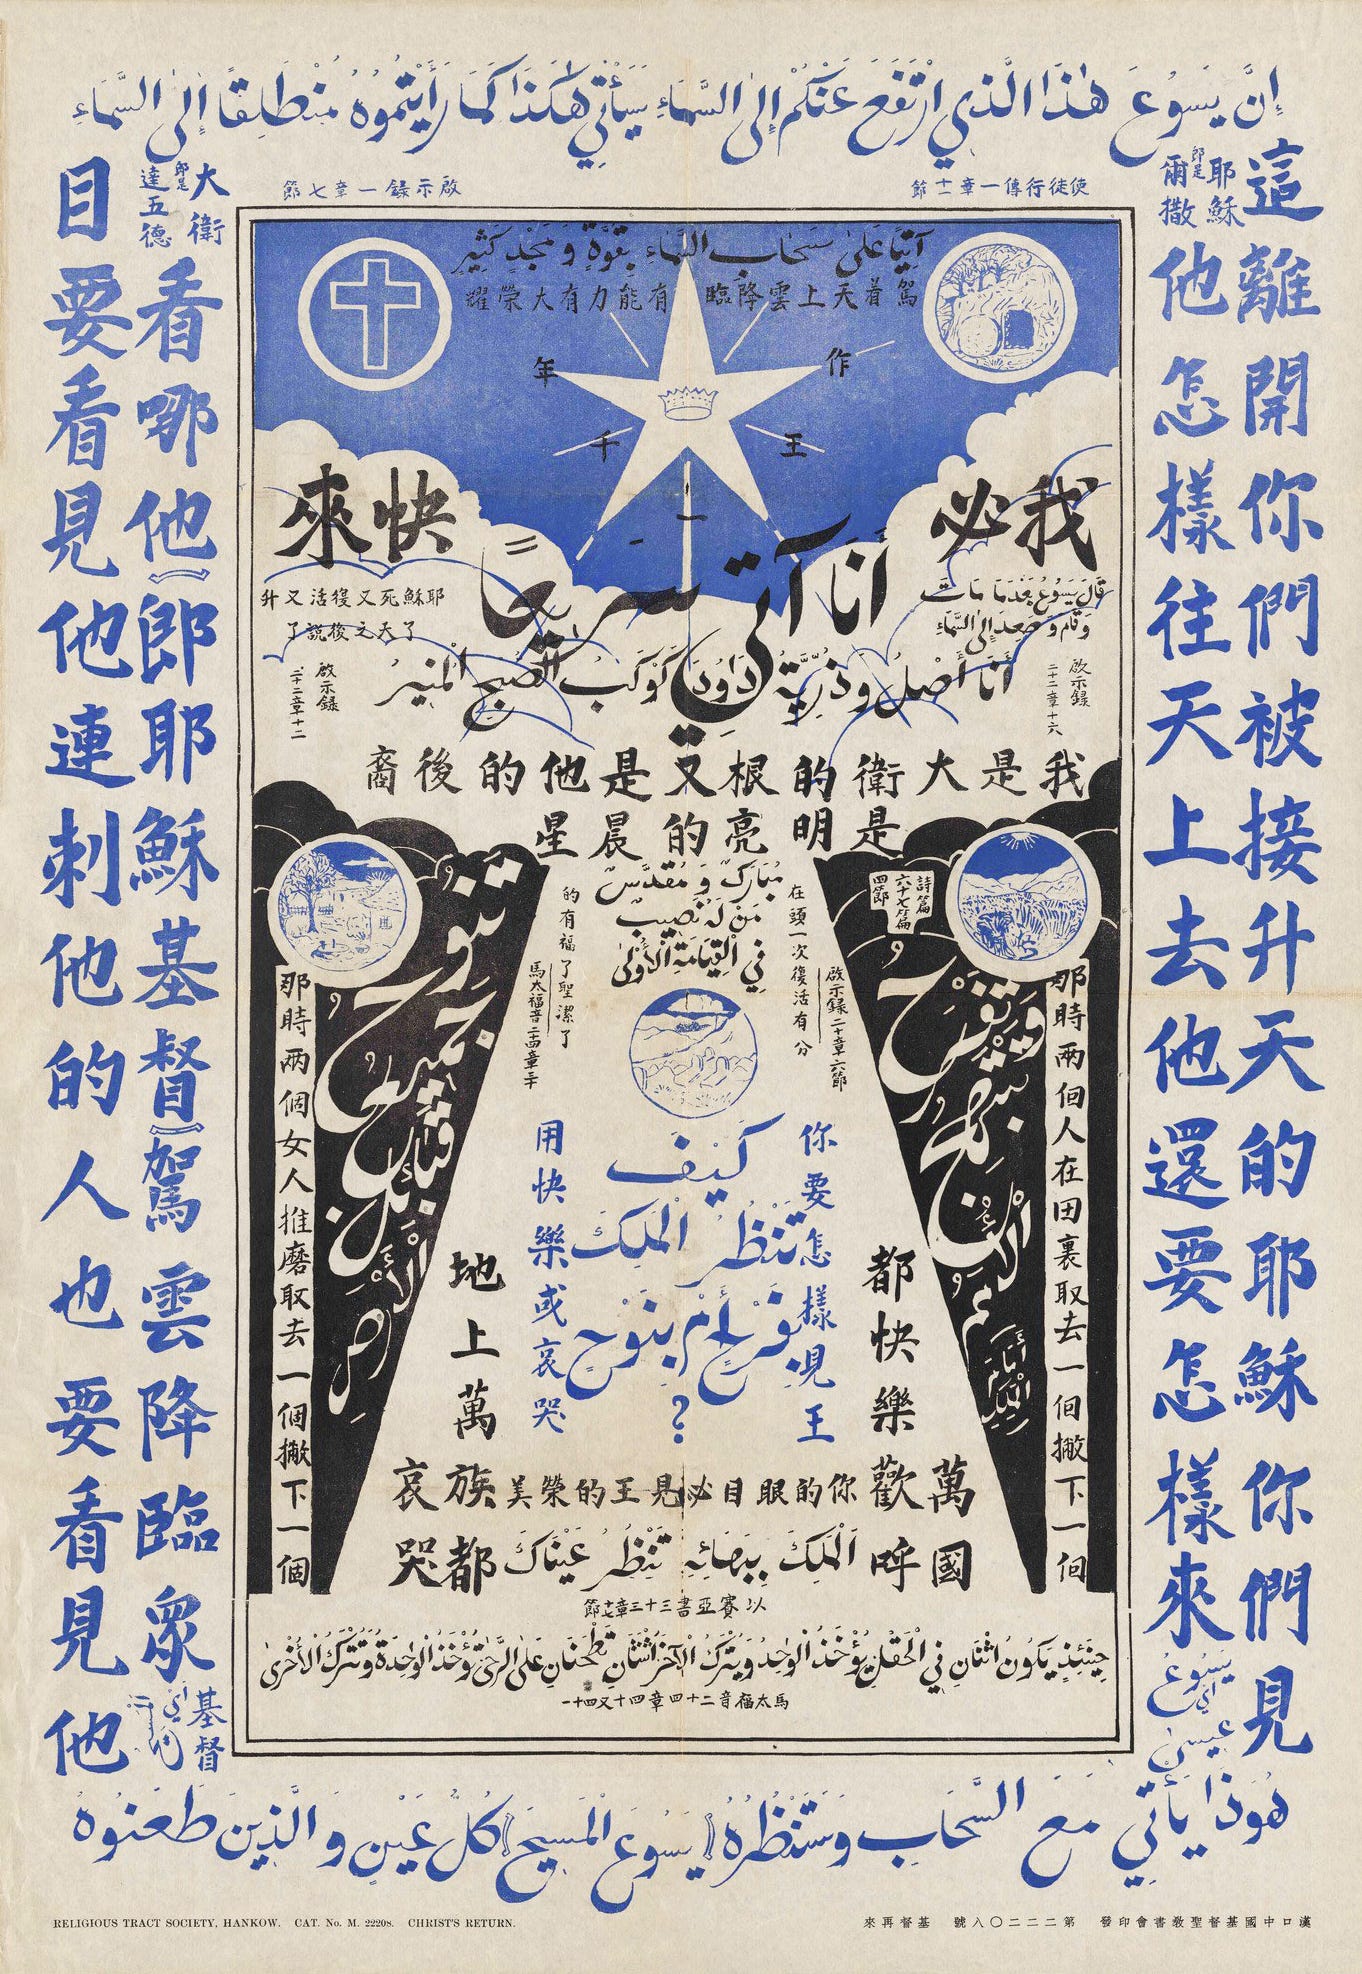 إِنَّ يَسُوعَ هٰذَا الَّذِي ارْتَفَعَ عَنْكُمْ إِلَى السَّمَاءِ سَيَأْتِي هٰكَذَا كَمَا رَأَيْتُمُوهُ مُنْطَلِقًا إِلَى السَّمَاءِ
使徒行傳一章十一節
啟示錄一章七節
這離開你們被接升天的耶穌你們見
耶穌即是爾撒
他怎樣往天上去他還要怎樣來
يَسُوعُ
اي
عيسىٰ
大衛即是達五德
看哪他(即耶穌基督)駕雲降臨眾
基督
目要看見他連刺他的人也要看見他
آتِيًا عَلىٰ سَحَابِ السَّمَاءِ بِقُوَّةٍ وَمَجْدٍ كَثِيرٍ
駕着天上雲降臨有能力有大榮耀
作王一千年
我必快來
أَنَا آتِي سَرِيعًا
قَالَ يَسُوعُ بَعْدَمَا مَاتَ
وَقَامَ وَصَعِدَ إِلَى السَّمَاءِ
耶穌死又復活又升
了天之後說了
أَنَا أَصْلُ وَذُرِّيَّةُ دَاوُدَ كَوْكَبُ الصُّبْحِ الْمُنِيرُ
啟示錄
二十二章十六
啟示錄
二十二章十二
我是大衛的根又是他的後裔
是明亮的晨星
مُبَارَكٌ وَمُقَدَّسٌ
مَنْ لَهُ نَصِيبٌ
فِي الْقِيَامَةِ الْأُولىٰ
在頭一次復活有分
的有福了聖潔了
啟示錄二十章六節
馬太福音二十四章三十
詩篇
六十七篇
四節
وَتَفْرَحُ وَتَبْتَهِجُ الْأُمَمُ
تَنُوحُ جَمِيعُ قَبَائِلِ الْأَرْضِ
那時兩個人在田裏取去一個撇下一個
那時兩個女人推磨取去一個撇下一個
كَيْفَ
تَنْظُرُ الْمَلِكَ
بِفَرَحٍ أَمْ بِنَوْحٍ
؟
你要怎樣見王
用快樂或哀哭
萬國
都快樂歡呼
地上萬族都
哀哭
你的眼目必見王的榮美
الْمَلِكَ بِبَهَائِهِ تَنْظُرُ عَيْنَاكَ
以賽亞書三十三章十七節
حِينَئِذٍ يَكُونُ اثْنَانِ فِي الْحَقْلِ يُؤْخَذُ الْوَاحِدُ وَيُتْرَكُ الْآخَرُ اثْنَتَانِ تَطْحَنَانِ عَلَى الرَّحَى تُؤْخَذُ الْوَاحِدَةُ وَتُتْرَكُ الْأُخْرَى
馬太福音二十四章四十又四十一
هُوَذَا يَأْتِي مَعَ السَّحَابِ وَسَتَنْظُرُهُ (يَسُوعَ الْمَسِيحَ) كُلُّ عَيْنٍ وَالَّذِينَ طَعَنُوهُ
RELIGIOUS TRACT SOCIETY, HANKOW. CAT. No. M. 22208. CHRIST'S RETURN.
漢口中國基督聖教書會印發 第二二二〇八號 基督再來